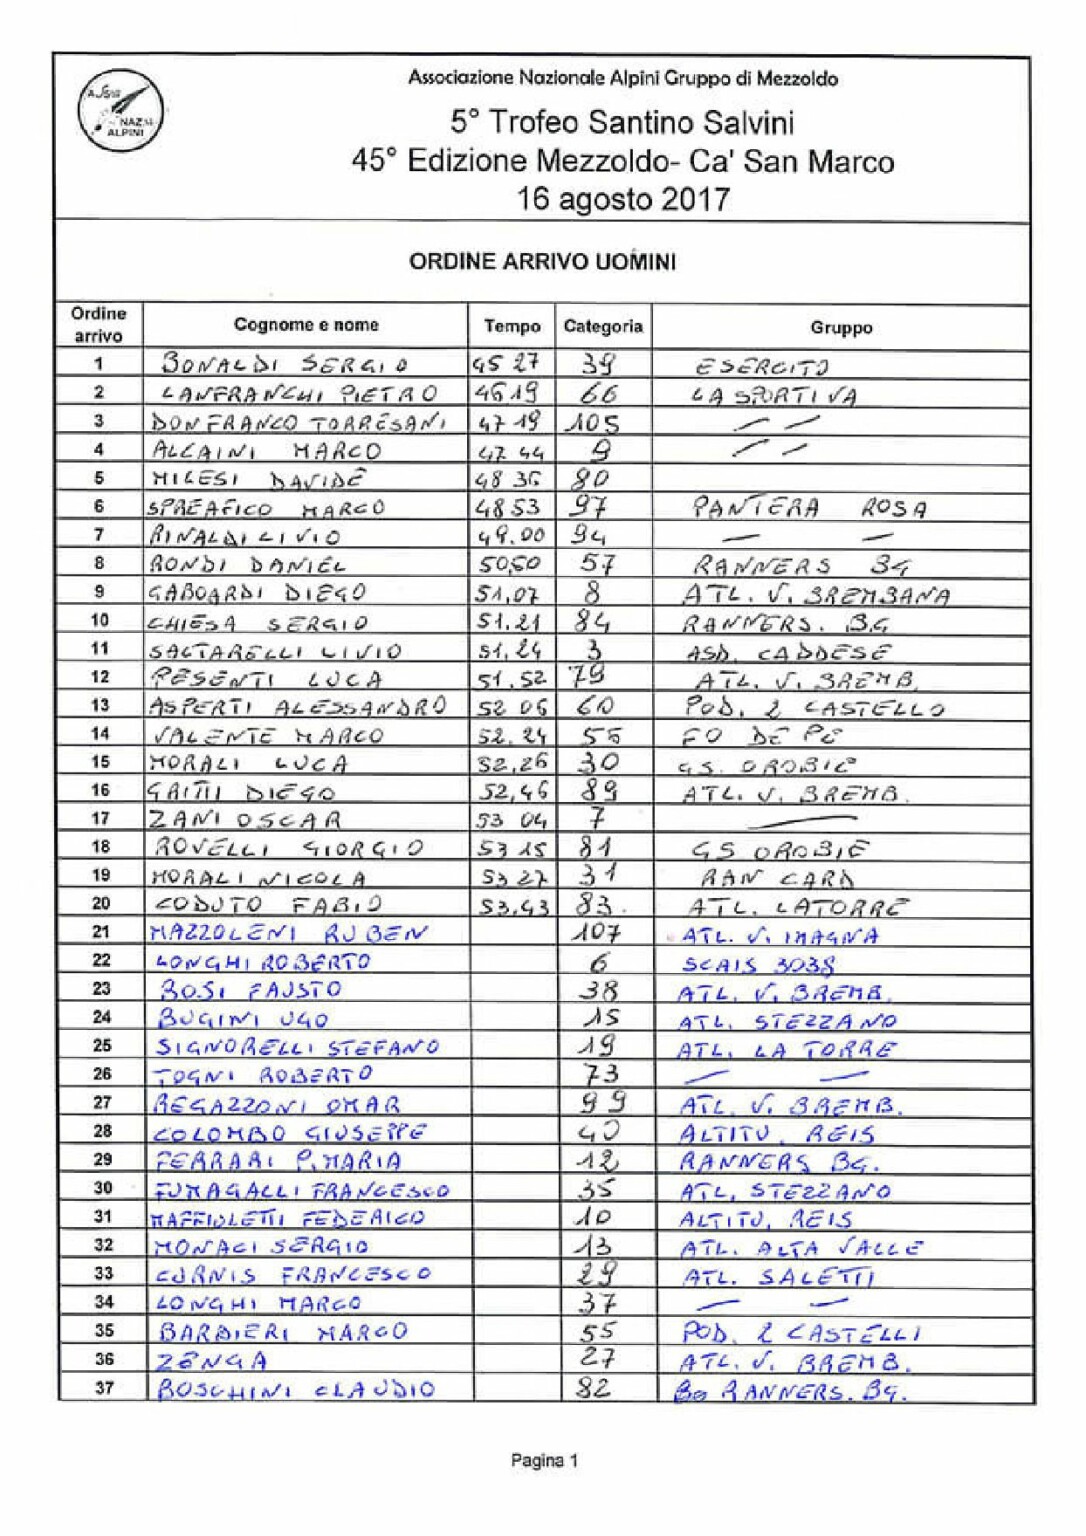 ASS.
NAZ.
ALPINI
Associazione Nazionale Alpini Gruppo di Mezzoldo
5° Trofeo Santino Salvini
45° Edizione Mezzoldo- Ca' San Marco
16 agosto 2017
ORDINE ARRIVO UOMINI
Ordine arrivo Cognome e nome Tempo Categoria Gruppo
1 BONALDI SERGIO 45 27 39 ESERCITO
2 LANFRANCHI PIETRO 46 19 66 LA SPORTIVA
3 DONFRANCO TORRESANI 47 19 105 — —
4 ALCAINI MARCO 47 44 9 — —
5 MILESI DAVIDE 48 36 80
6 SPREAFICO MARCO 48 53 97 PANTERA ROSA
7 RINALDI LIVIO 49.00 94 — —
8 RONDI DANIEL 50,50 57 RANNERS BG
9 GABOARDI DIEGO 51,07 8 ATL. V. BREMBANA
10 CHIESA SERGIO 51.21 84 RANNERS. BG
11 SALTARELLI LIVIO 51,24 3 ASD. CADDESE
12 PESENTI LUCA 51.52 79 ATL. V. BREMB.
13 ASPERTI ALESSANDRO 52 06 60 POD. 2 CASTELLO
14 VALENTE MARCO 52.24 56 FO DE PE
15 MORALI LUCA 52,26 30 GS. OROBIE
16 GAITI DIEGO 52,46 89 ATL. V. BREMB.
17 ZANI OSCAR 53 04 7 —
18 ROVELLI GIORGIO 53 15 81 GS OROBIE
19 MORALI NICOLA 53 27 31 RAN CARD
20 CODUTO FABIO 53,43 83. ATL. LATORRE
21 MAZZOLENI RUBEN 107 ATL. V. IMAGNA
22 LONGHI ROBERTO 6 SCAIS 3038
23 BOSI FAUSTO 38 ATL. V. BREMB.
24 BUGINI UGO 15 ATL. STEZZANO
25 SIGNORELLI STEFANO 19 ATL. LA TORRE
26 TOGNI ROBERTO 73 — —
27 REGAZZONI OMAR 99 ATL. V. BREMB.
28 COLOMBO GIUSEPPE 40 ALTITU. REIS
29 FERRARI P.MARIA 12 RANNERS BG.
30 FUMAGALLI FRANCESCO 35 ATL. STEZZANO
31 MAFFIOLETTI FEDERICO 10 ALTITU. REIS
32 MONACI SERGIO 13 ATL. ALTA VALLE
33 CURNIS FRANCESCO 29 ATL. SALETTI
34 LONGHI MARCO 37 — —
35 BARBIERI MARCO 55 POD. 2 CASTELLI
36 ZENGA 27 ATL. V. BREMB.
37 BOSCHINI CLAUDIO 82 BG RANNERS. BG.
Pagina 1